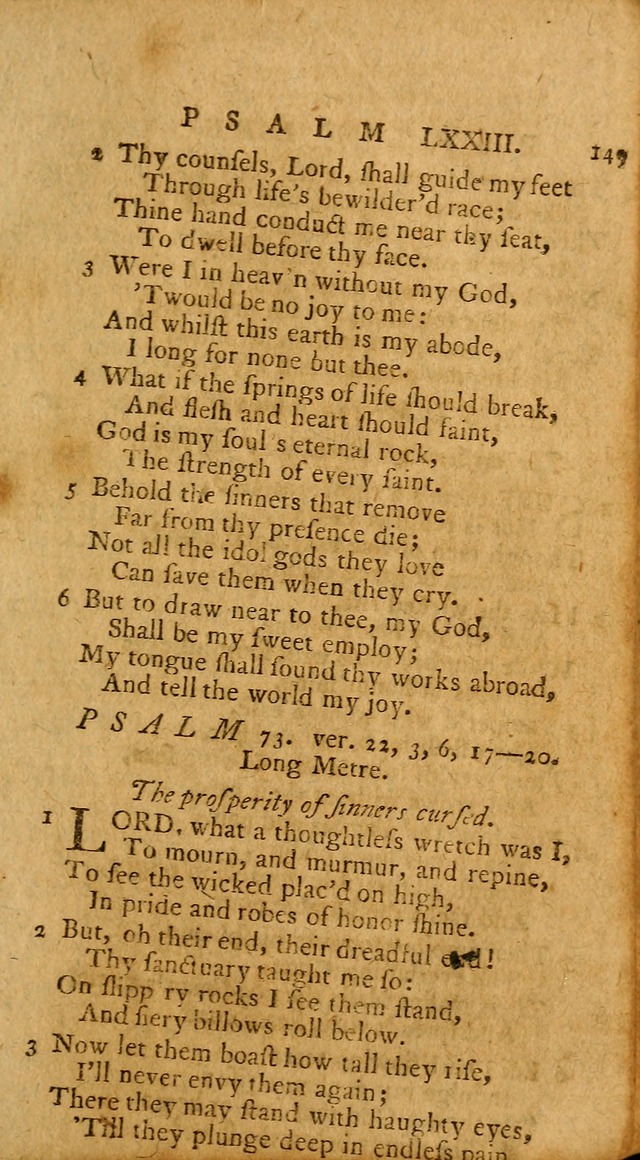 PSALM LXXIII. 149
2 Thy counſels, Lord, ſhall guide my feet
Through life's bewilder'd race;
Thine hand conduct me near thy ſeat,
To dwell before thy face.
3 Were I in heav'n without my God,
'Twould be no joy to me:
And whilſt this earth is my abode,
I long for none but thee.
4 What if the ſprings of life ſhould break,
And fleſh and heart ſhould faint,
God is my ſoul's eternal rock,
The ſtrength of every ſaint.
5 Behold the ſinners that remove
Far from thy preſence die;
Not all the idol gods they love
Can ſave them when they cry.
6 But to draw near to thee, my God,
Shall be my ſweet employ;
My tongue ſhall ſound thy works abroad,
And tell the world my joy.
PSALM 73. ver. 22, 3, 6, 17—20.
Long Metre.
The proſperity of ſinners curſed.
1 LORD, what a thoughtleſs wretch was I,
To mourn, and murmur, and repine,
To ſee the wicked plac'd on high,
In pride and robes of honor ſhine.
2 But, oh their end, their dreadful end!
Thy ſanctuary taught me ſo:
On ſlipp'ry rocks I ſee them ſtand,
And fiery billows roll below.
3 Now let them boaſt how tall they riſe,
I'll never envy them again;
There they may ſtand with haughty eyes,
'Till they plunge deep in endleſs pain